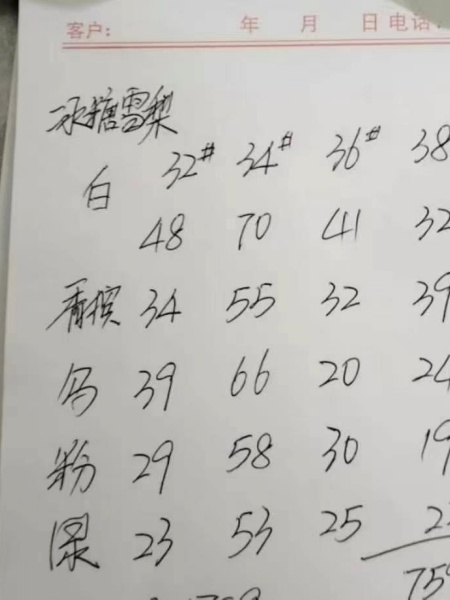 客户： 年 月 日 电话：
冰糖雪梨
32# 34# 36# 38
白 48 70 41 32
香槟 34 55 32 39
39 66 20 24
粉 29 58 30 19
绿 23 53 25